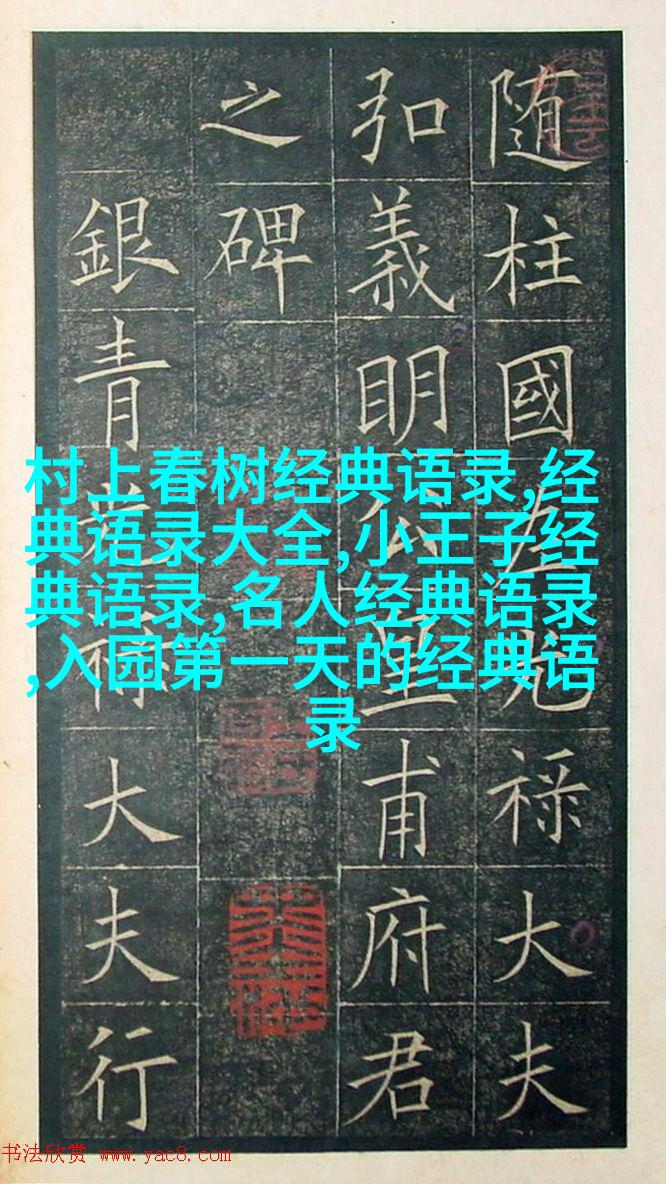 随柱國左光祿大夫
弘義明公皇甫府君
之碑
銀青光祿大夫行
村上春树经典语录,经
典语录大全,小王子经
典语录,名人经典语录
,入园第一天的经典语
录
书法欣赏 www.yac8.com